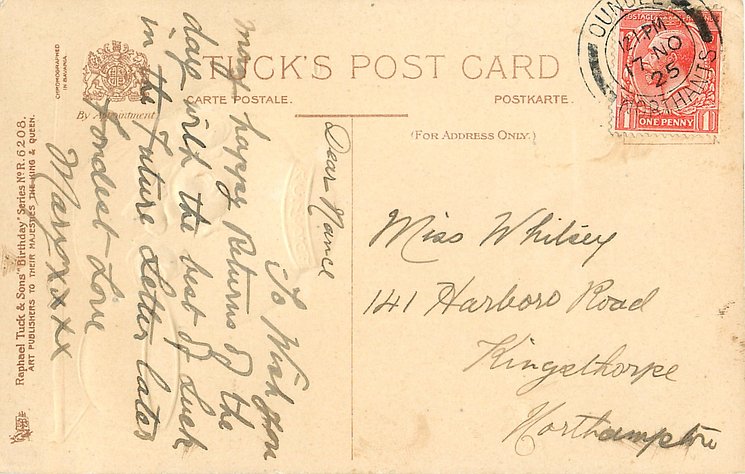 TUCK'S POST CARD
CARTE POSTALE.
POSTKARTE.
(FOR ADDRESS ONLY.)
CHROMOGRAPHED
IN BAVARIA.
By Appointment
Raphael Tuck & Sons' "Birthday" Series No R. 6208.
ART PUBLISHERS TO THEIR MAJESTIES THE KING & QUEEN.
Dear Nance
To Wish You
many happy Returns of the
day with the best of Luck
in the Future Letter later
Fondest Love
Mary xxxx
Miss Whitsey
141 Harboro Road
Kingsthorpe
Northampton
OUNDLE
12 PM
7 NO
25
NORTHANTS
POSTAGE
1 ONE PENNY 1